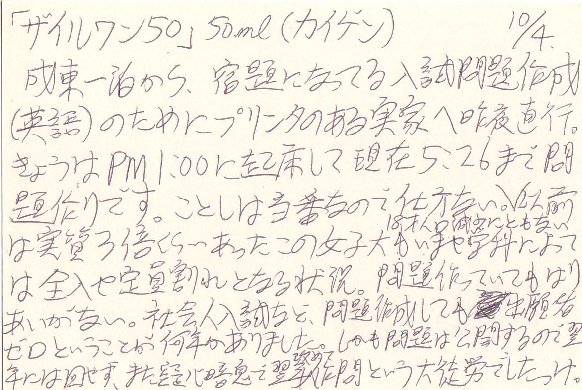 「ザイルワン50」50ml(カイゲン) 10/4.
成東一泊から、宿題になってる入試問題作成
(英語)のためにプリンタのある実家へ昨夜直行。
きょうはPM1:00に起床して現在5:26まで問
題作りです。ことしは当番なので仕方ない。以前
18才人口減少にともない
は実質3倍くらいあったこの女子大もいまや学科によって
は全入や定員割れとなる状況。問題作っていてもはり
あいがない。社会人入試など、問題作成しても出願者
ゼロということが何年かありました。しかも問題は公開するので翌
年には回せず、また疑心暗鬼で翌年改めて作問という大徒労でしたっけ。